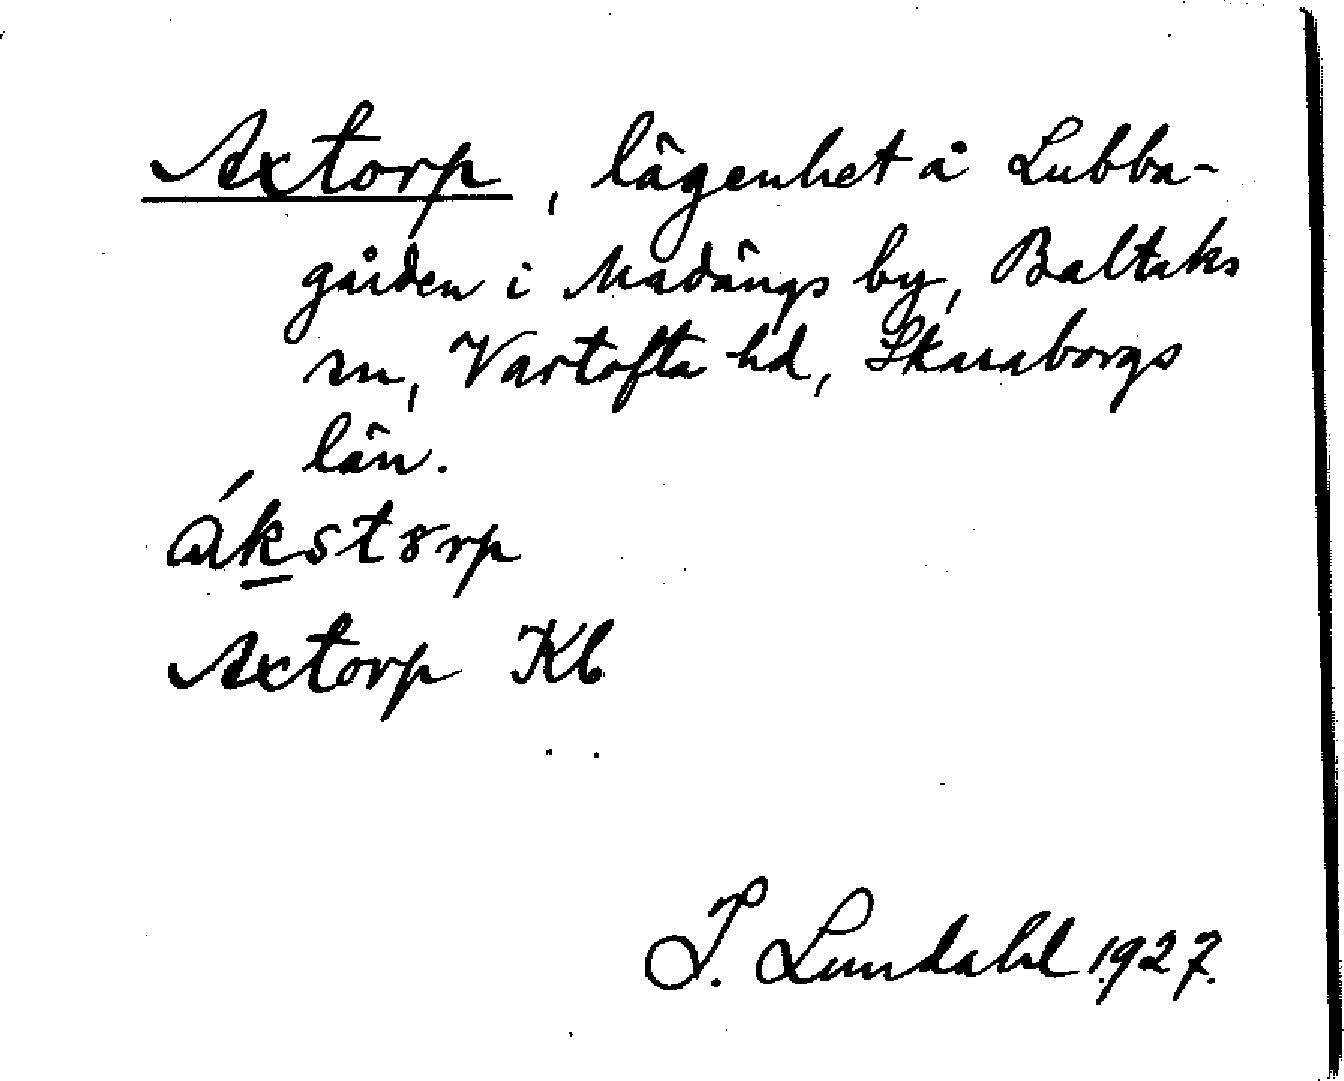 Axtorp, lägenhet å Lubba-
gården i Madängs by, Baltaks
sn, Vartofta hd, Skaraborgs
län.
ákstorp
Axtorp Kb
I. Lundahl 1927.